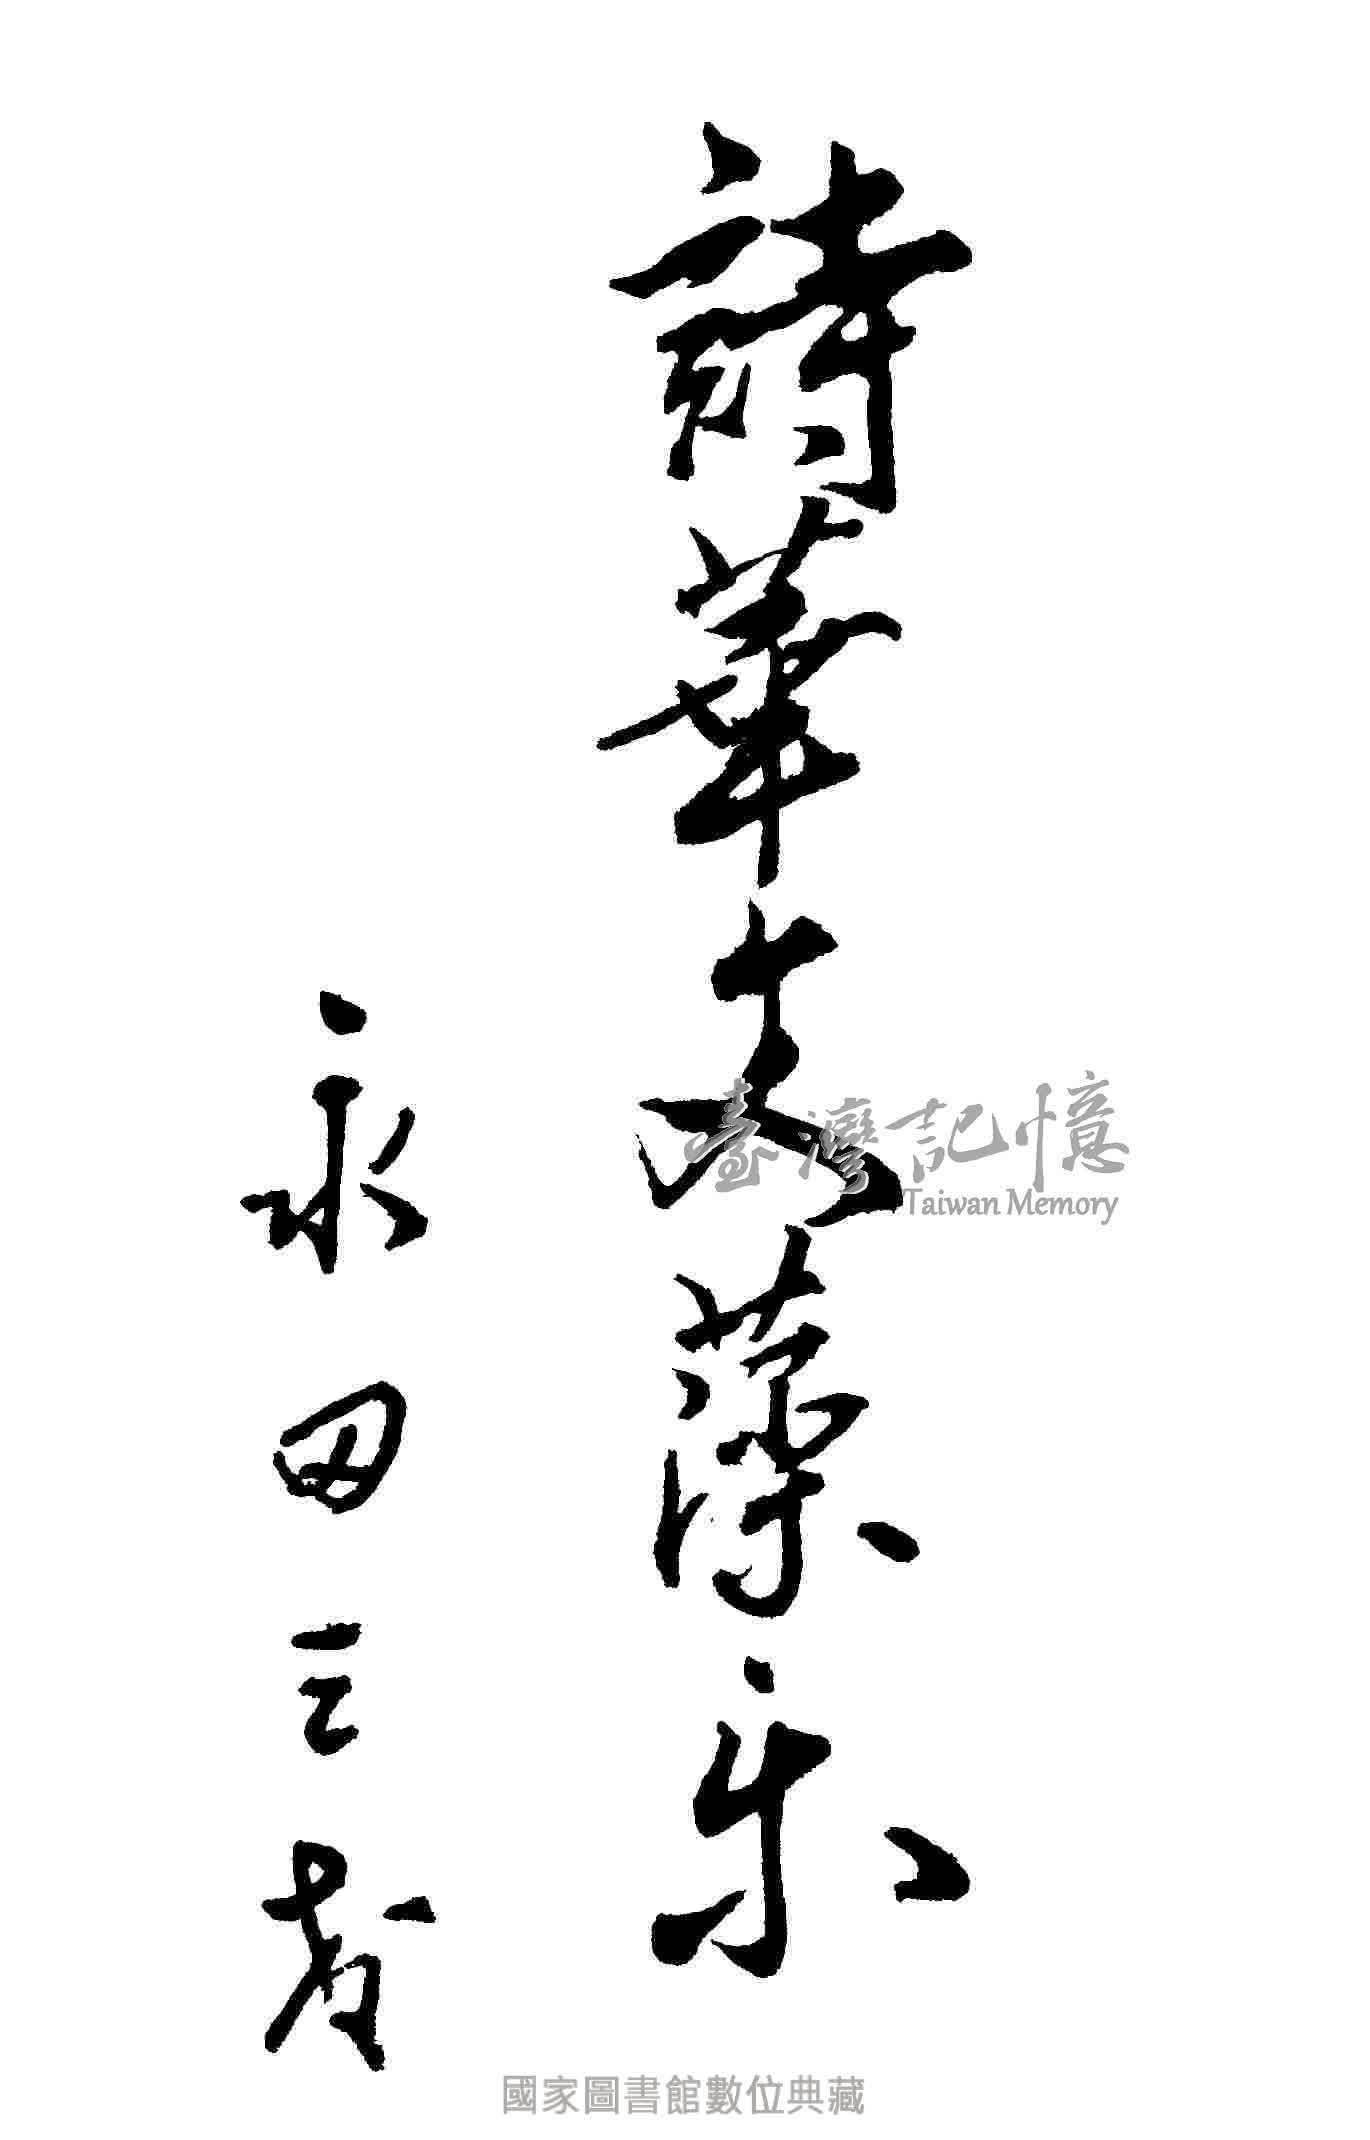 詩華文藻樂
永田三
臺灣記憶
Taiwan Memory
國家圖書館數位典藏